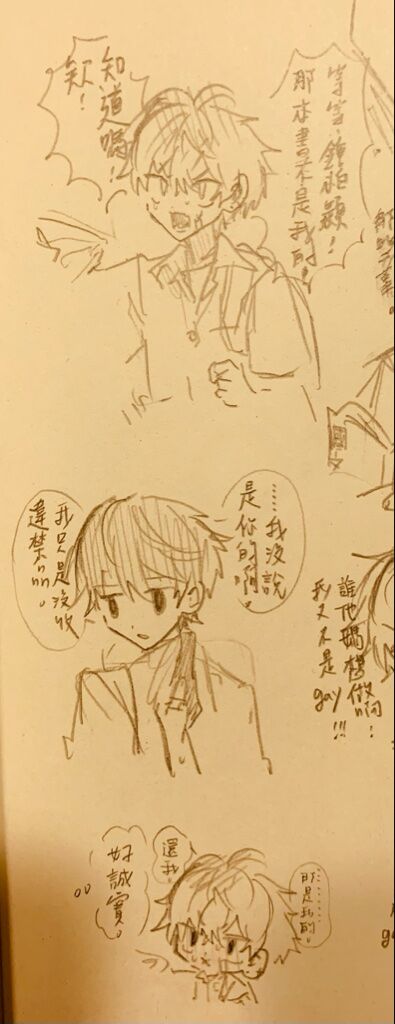 等等、
那本書不是我的!
知道嗎!
欸!
國文
……我沒說
是你的啊。
我只是沒收
違禁品。
誰他媽想做啊!
我又不是gay!!!
……那是我的。
還我。
好誠實。